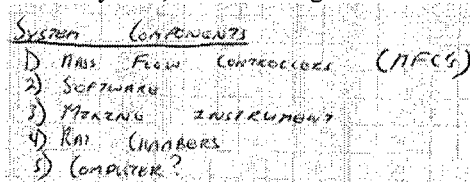 System Components
1) Mass Flow Controllers (MFCs)
2) Software
3) Mixing Instrument
4) Rat Chambers
5) Computer?